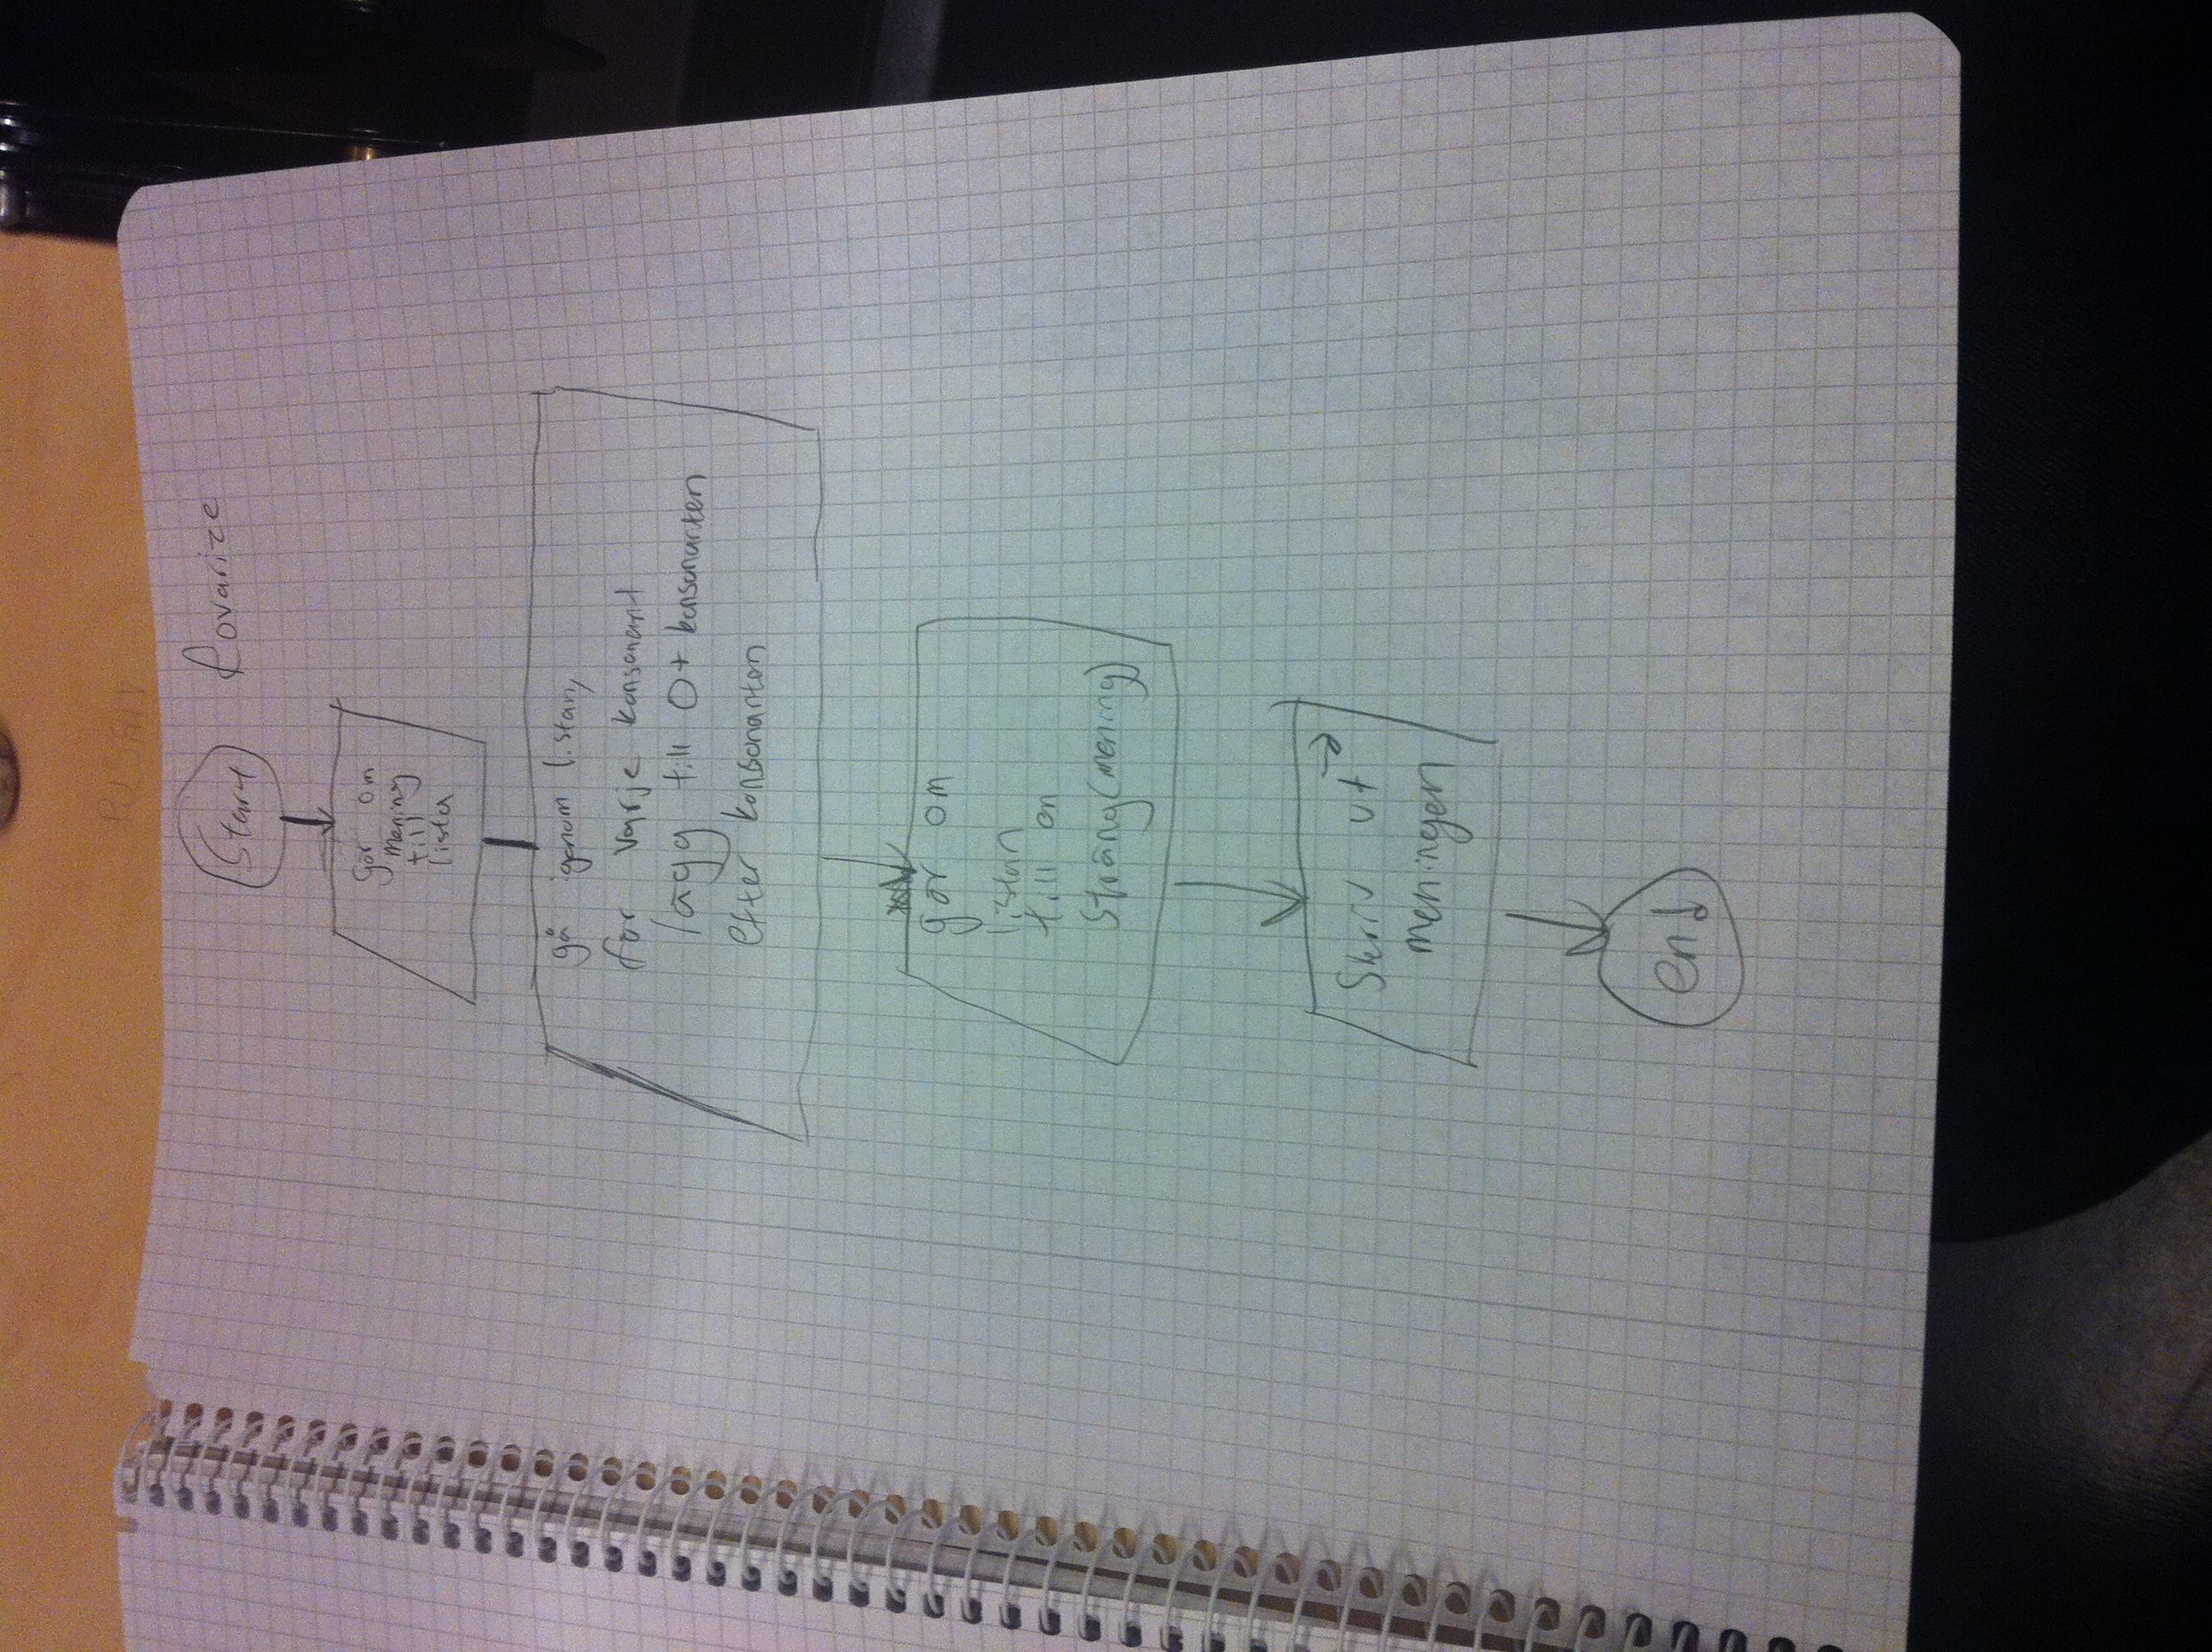 Rovarize
Start
Gör om
mening
till
lista
gå igenom listan,
för varje konsonant
lägg till O+konsonanten
efter konsonanten
gör om
listan
till en
sträng(mening)
Skriv ut
meningen
end